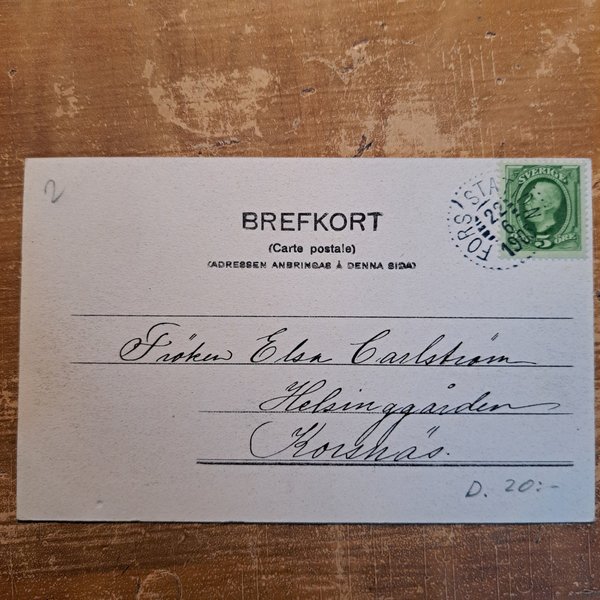 2
BREFKORT
(Carte postale)
(ADRESSEN ANBRINGAS Å DENNA SIDA)
SVERIGE
5 ÖRE
FORS STATION
22
6
Fröken Elsa Carlström
Helsinggården
Korsnäs.
D. 20:-